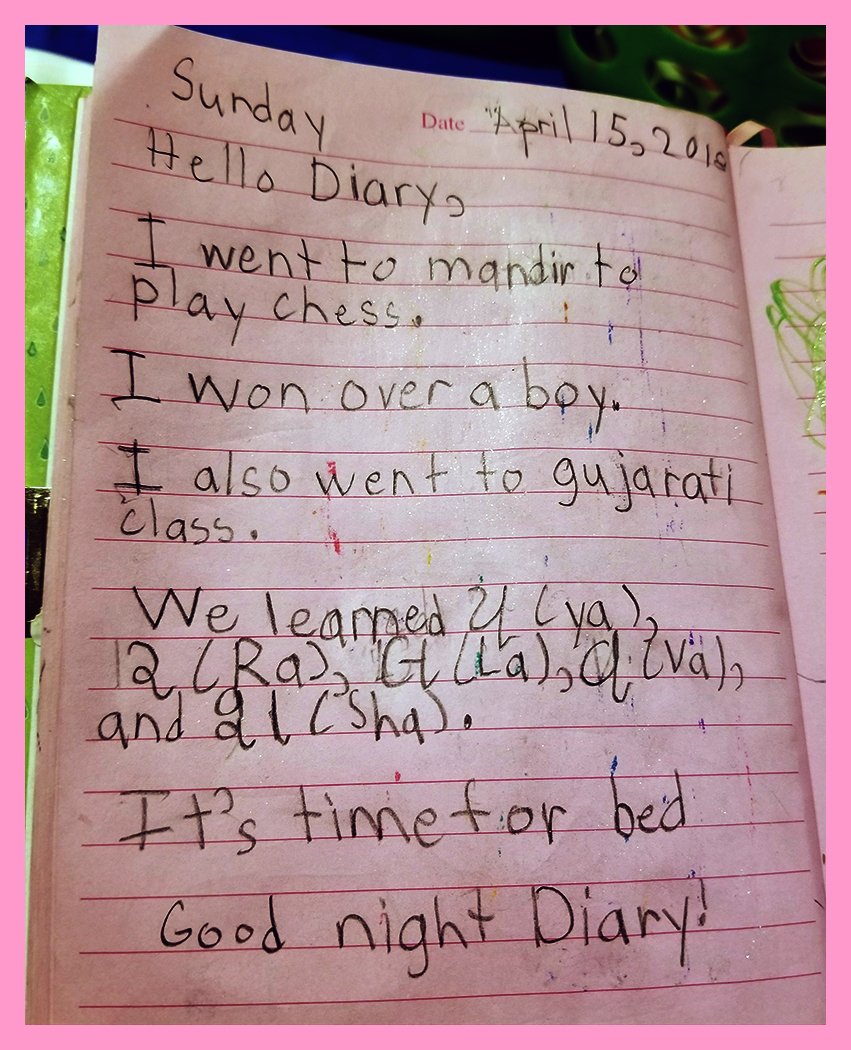 Sunday
Date April 15, 2018
Hello Diary,
I went to mandir to
play chess.
I won over a boy.
I also went to gujarati
class.
We learned ય (ya),
ર (Ra), લ (La), વ (va),
and શ (Sha).
It's time for bed
Good night Diary!